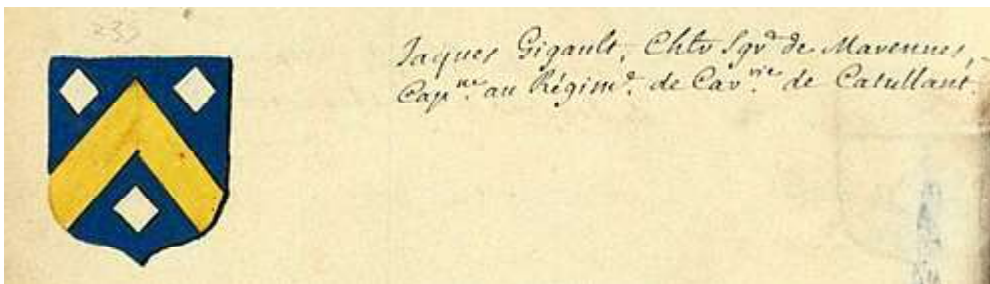 235
Jaques Gigault, Chlr Sgr de Marennes,
Capne au Régimt de Cavrie de Catullant.